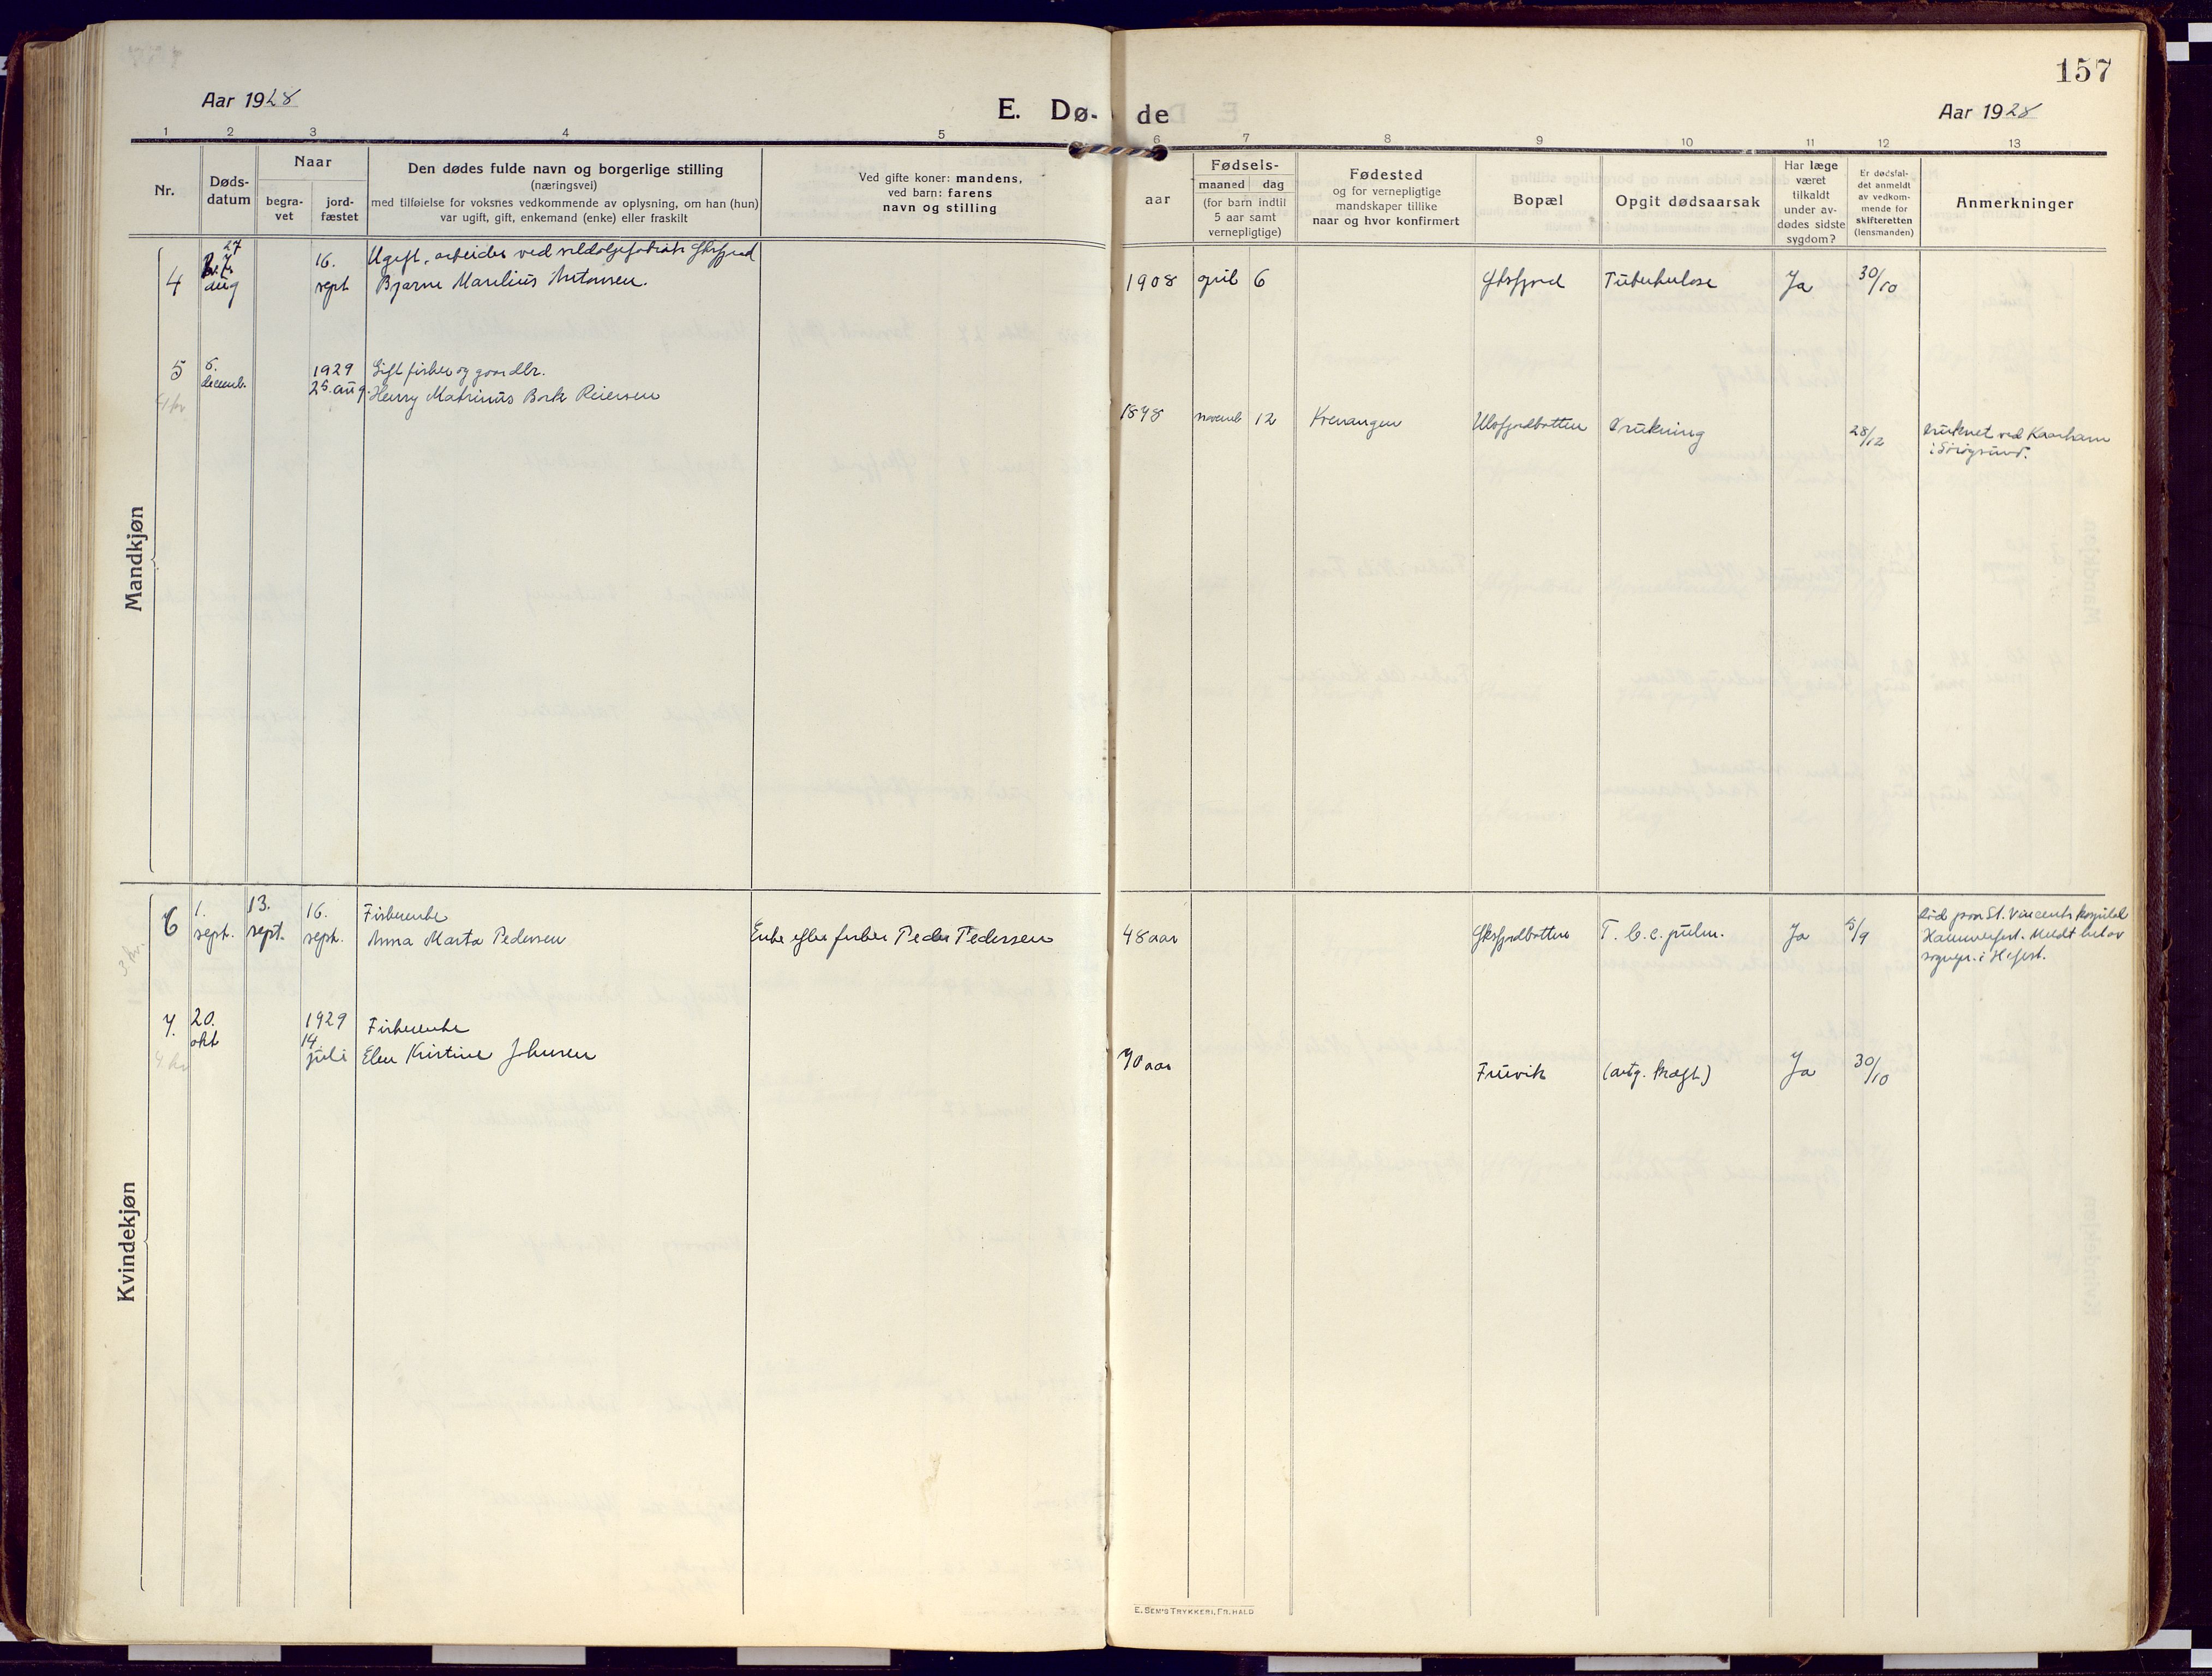 157
Aar 1928
E. Dø-
de
Aar 1928
1 2 3 4 5 6 7 8 9 10 11 12 13
Nr.
Døds-
datum
Naar
begra-
vet
jord-
fæstet
Den dødes fulde navn og borgerlige stilling
(næringsvei)
med tilføielse for voksnes vedkommende av oplysning, om han (hun)
var ugift, gift, enkemand (enke) eller fraskilt
Ved gifte koner: mandens,
ved barn: farens
navn og stilling
aar
Fødsels-
maaned dag
(for barn indtil
5 aar samt
vernepligtige)
Fødested
og for vernepligtige
mandskaper tillike
naar og hvor konfirmert
Bopæl
Opgit dødsaarsak
Har læge
været
tilkaldt
under av-
dødes sidste
sygdom?
Er dødsfal-
det anmeldt
av vedkom-
mende for
skifteretten
(lensmanden)
Anmerkninger
Mandkjøn
4
27
aug
16.
sept
Ugift, arbeider ved sildoljefabrik
Bjarne Marelius Antonsen.
1908 april 6
Øksfjord
Tuberkulose
Ja
30/10
5
6.
decemb.
1929
25. aug.
Gift fisker og gaardbr.
Henry Matrinus Bork Reiersen
1898 novemb 12
Kvenangen
Ulvsfjordbotten
Drukning
28/12
druknet ved Kaarhavn
i Sørøysund.
Kvindekjøn
6
1.
sept.
13.
sept.
16.
sept.
Fiskerenke
Anna Marta Pedersen
Enke efter fisker Peder Pedersen
48 aar
Øksfjordbotten
T. b. c. pulm.
Ja
5/9
død paa St. Vincents hospital
Hammerfest. Meldt hit av
sognepr. i H.fest.
3 kv.
7.
20.
okt
1929
14.
juli
Fiskerenke
Elen Kristine Johnsen
70 aar
Fruvik
(avtg. kræft)
Ja
30/10
4 kv
E. SEM'S TRYKKERI, FR. HALD